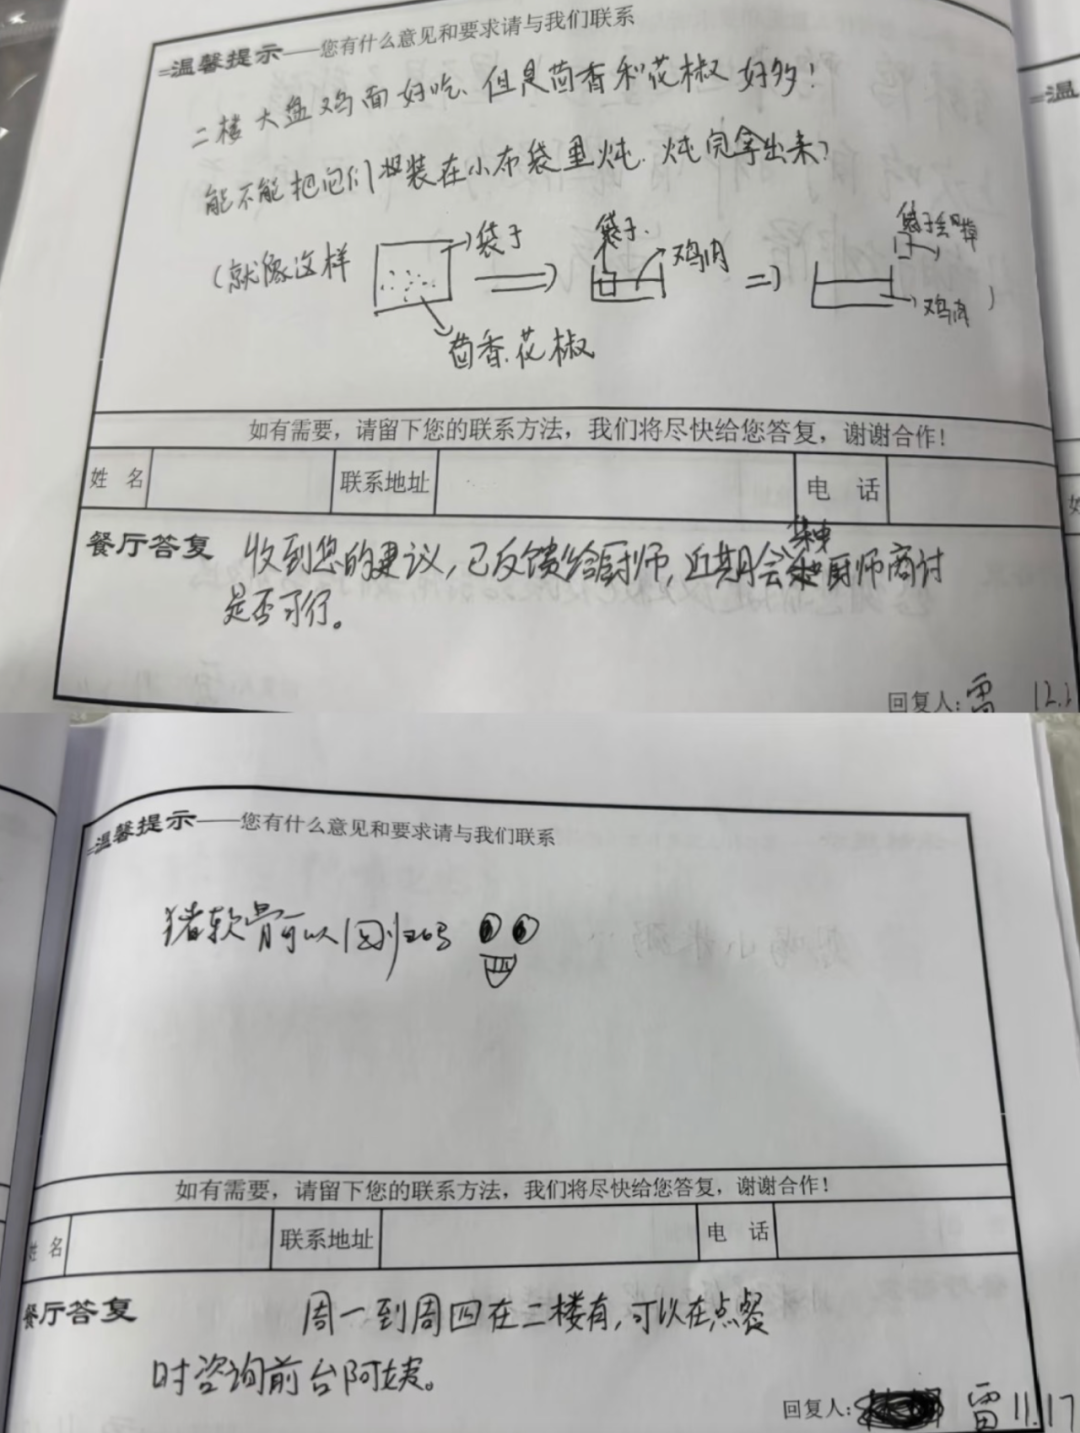 温馨提示——您有什么意见和要求请与我们联系
二楼大盘鸡面好吃、但是茴香和花椒好多！
能不能把它们装在小布袋里炖.炖完拿出来？
（就像这样
袋子
茴香.花椒
袋子.
鸡肉
袋子
鸡肉
）
如有需要，请留下您的联系方法，我们将尽快给您答复，谢谢合作！
姓 名
联系地址
电 话
餐厅答复
收到您的建议，已反馈给厨师，近期会集中和厨师商讨
是否可行。
回复人：雷
温馨提示——您有什么意见和要求请与我们联系
猪软骨可以
如有需要，请留下您的联系方法，我们将尽快给您答复，谢谢合作！
姓 名
联系地址
电 话
餐厅答复
周一到周四在二楼有，可以在点餐
时咨询前台阿姨。
回复人：雷 11.17
温